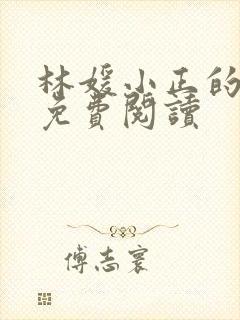 林媛小正的
免費閱讀
傅志寰